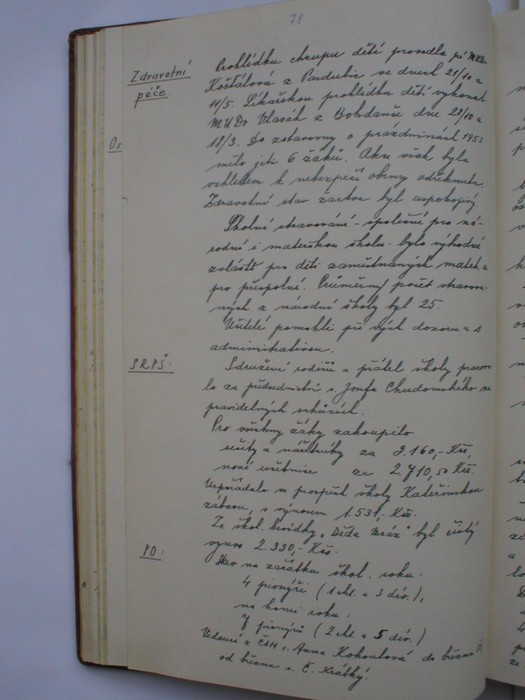 78
Zdravotní
péče.
Prohlídku chrupu dětí provedla pí MUDr.
Košťálová z Pardubic ve dnech 21/10 a
11/5. Lékařskou prohlídku dětí vykonal
MUDr Vlasák z Bohdanče dne 20/10 a
18/3. Do zotavovny o prázdninách 1953
mělo jeti 6 žáků. Akce však byla
vzhledem k nebezpečí obrny odřeknuta.
Zdravotní stav žactva byl uspokojivý.
Školní stravování - společné pro ná-
rodní i mateřskou školu - bylo výhodné
zvláště pro děti zaměstnaných matek a
pro přespolní. Průměrný počet stravova-
ných z národní školy byl 25.
Učitelé pomohli při dozoru a s
administrativou.
SRPŠ:
Sdružení rodičů a přátel školy pracova-
lo za předsednictví s. Josefa Chudomského na
pravidelných schůzích.
Pro všechny žáky zakoupilo
sešity a náčrtníky za 3.160,- Kčs.
nové učebnice za 2.710,50 Kčs.
Uspořádalo ve prospěch školy Kateřinskou
zábavu, s výnosem 1.531,- Kčs.
Ze škol. besídky "Děda Mráz" byl čistý
výnos 2.330,- Kčs.
PO:
Měo na začátku škol. roku:
4 pionýři (1 chl. a 3 dív.),
na konci roku:
7 pionýrů (2 chl. a 5 dív.)
Vedoucí z ČSM s. Anna Kohoutová do března,
od března s. Č. Krátký.